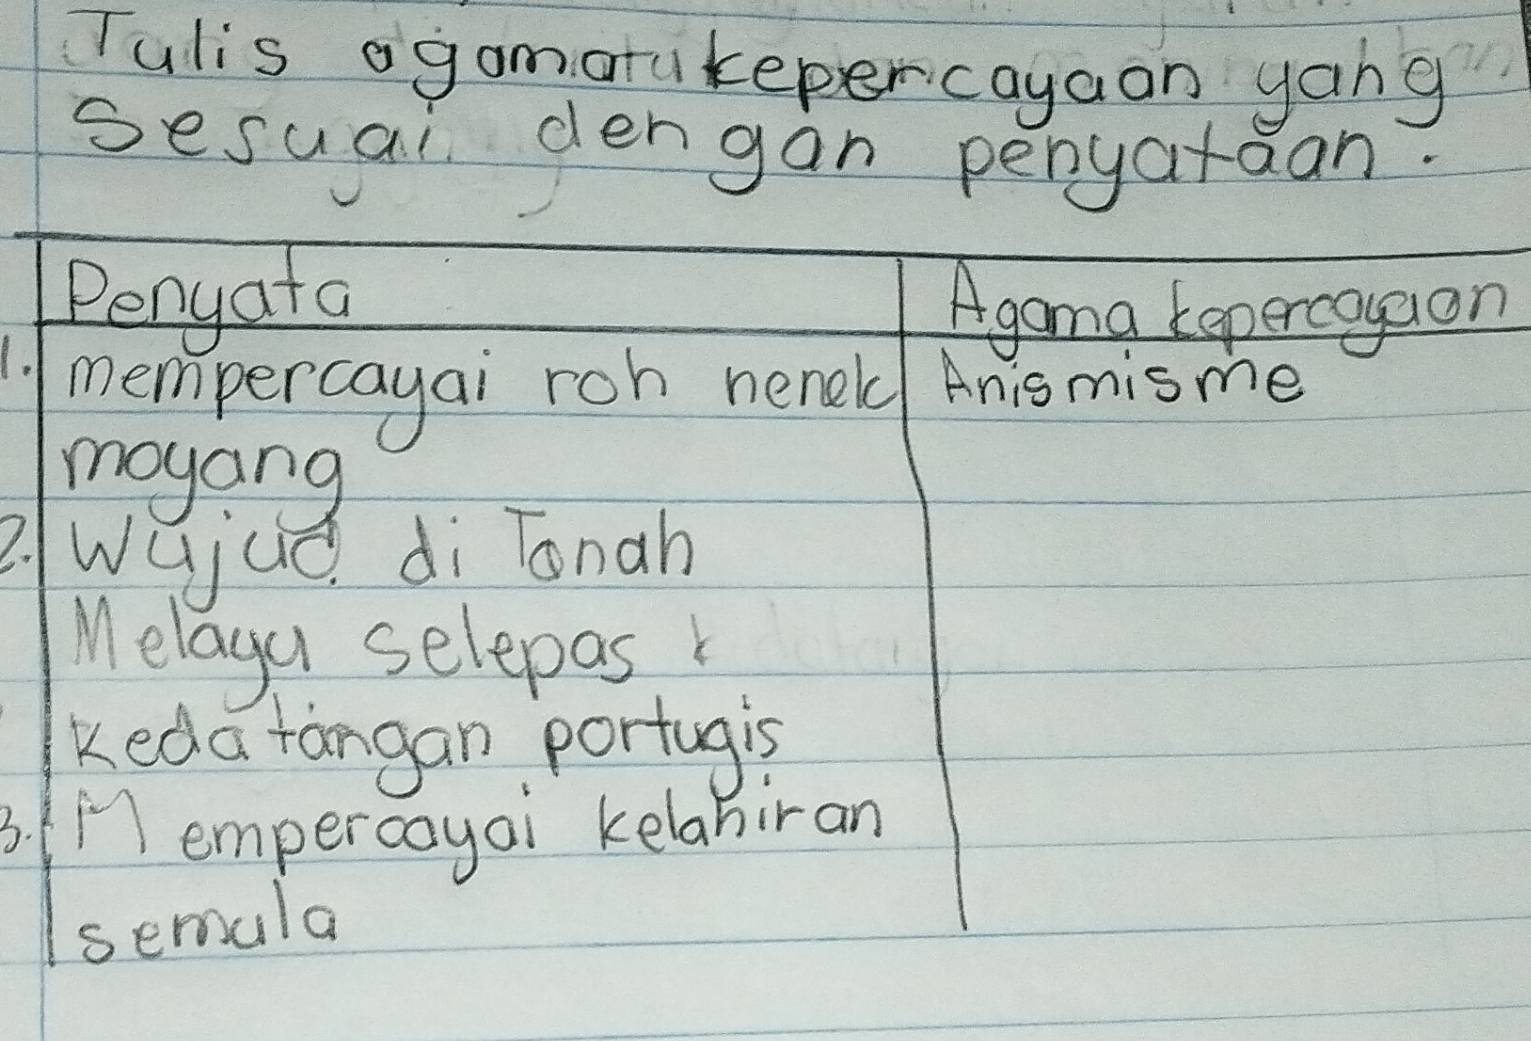 Tulis agamatukepercayaan yang
sesuai dengan penyataan.
Penyata Agama kepercayaan
1. mempercayai roh nenek Anismisme
moyang
2. Wujud di Tanah
Melayu selepas k
kedatangan portugis
3. Mempercayai kelahiran
semula